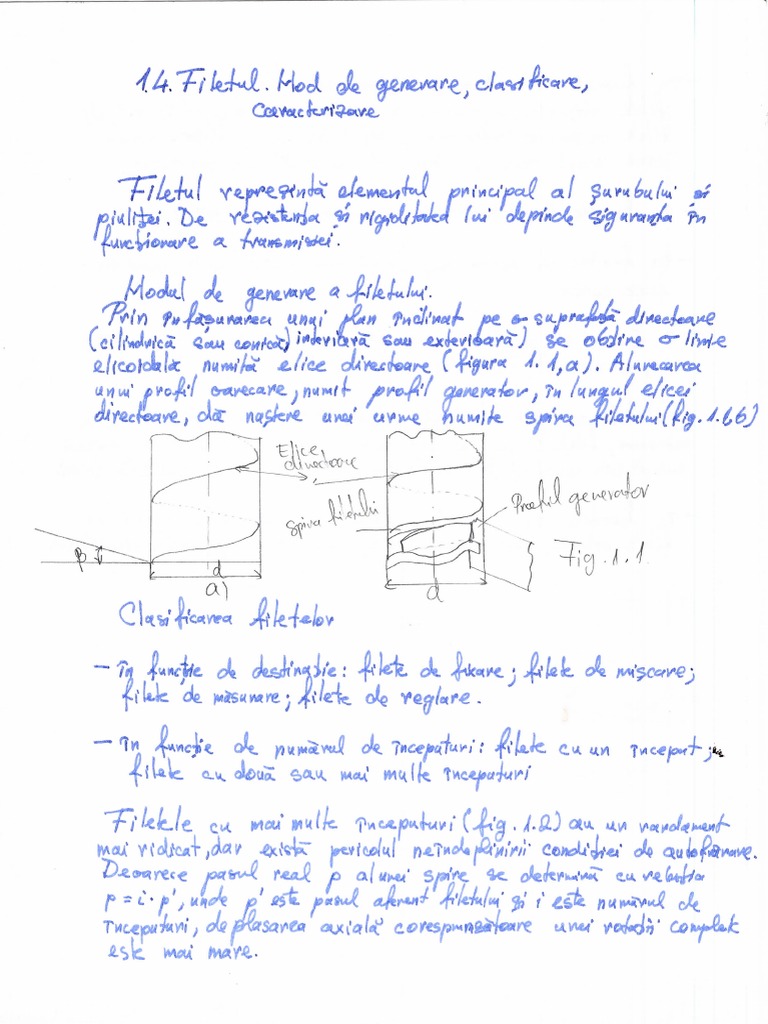 1.4. Filetul. Mod de generare, clasificare,
caracterizare
Filetul reprezintă elementul principal al șurubului și
piuliței. De rezistența și rigiditatea lui depinde siguranța în
funcționare a transmisiei.
Modul de generare a filetului.
Prin înfășurarea unui plan înclinat pe o suprafață directoare
(cilindrică sau conică, interioară sau exterioară) se obține o linie
elicoidală numită elice directoare (figura 1.1,a). Alunecarea
unui profil oarecare, numit profil generator, în lungul elicei
directoare, dă naștere unei urme numite spira filetului (fig. 1.1b)
Elice
directoare
Spira filetului
Profil generator
β
d
a)
d
Fig. 1.1
Clasificarea filetelor
- în funcție de destinație: filete de fixare; filete de mișcare;
filete de măsurare; filete de reglare.
- în funcție de numărul de începuturi: filete cu un început;
filete cu două sau mai multe începuturi
Filetele cu mai multe începuturi (fig. 1.2) au un randament
mai ridicat, dar există pericolul neîndeplinirii condiției de autofrânare.
Deoarece pasul real p al unei spire se determină cu relația
p = i · p', unde p' este pasul aferent filetului și i este numărul de
începuturi, deplasarea axială corespunzătoare unei rotații complete
este mai mare.